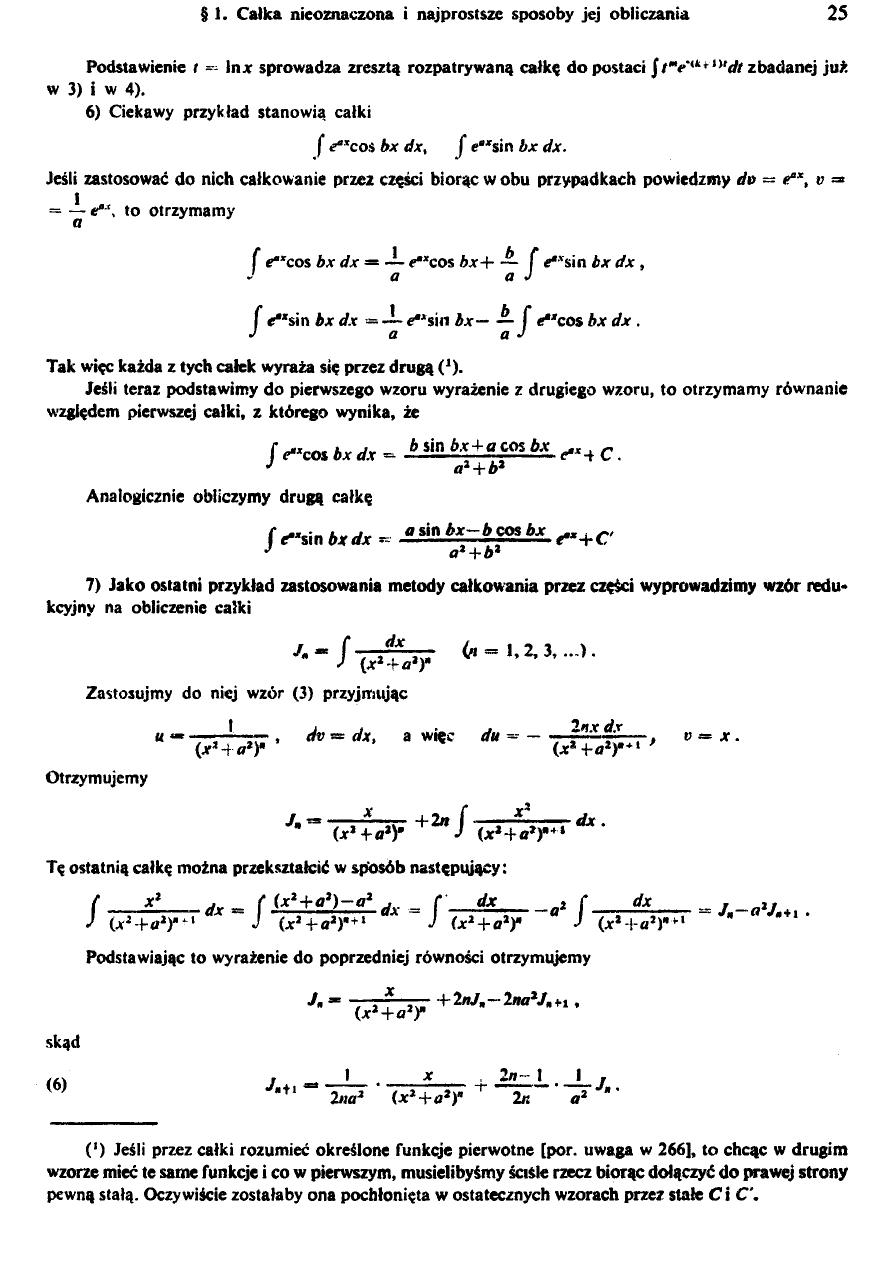 § 1. Całka nieoznaczona i najprostsze sposoby jej obliczania 25
Podstawienie t = ln x sprowadza zresztą rozpatrywaną całkę do postaci ∫ tᵐe⁽ᵏ⁺¹⁾ᵗdt zbadanej już
w 3) i w 4).
6) Ciekawy przykład stanowią całki
∫ eᵃˣcos bx dx, ∫ eᵃˣsin bx dx.
Jeśli zastosować do nich całkowanie przez części biorąc w obu przypadkach powiedzmy dv = eᵃˣ, v =
= 1/a eᵃˣ, to otrzymamy
∫ eᵃˣcos bx dx = 1/a eᵃˣcos bx + b/a ∫ eᵃˣsin bx dx ,
∫ eᵃˣsin bx dx = 1/a eᵃˣsin bx − b/a ∫ eᵃˣcos bx dx .
Tak więc każda z tych całek wyraża się przez drugą (¹).
Jeśli teraz podstawimy do pierwszego wzoru wyrażenie z drugiego wzoru, to otrzymamy równanie
względem pierwszej całki, z którego wynika, że
∫ eᵃˣcos bx dx = (b sin bx + a cos bx)/(a² + b²) eᵃˣ + C .
Analogicznie obliczymy drugą całkę
∫ eᵃˣsin bx dx = (a sin bx − b cos bx)/(a² + b²) eᵃˣ + C′
7) Jako ostatni przykład zastosowania metody całkowania przez części wyprowadzimy wzór redu-
kcyjny na obliczenie całki
Jₙ = ∫ dx/(x² + a²)ⁿ (n = 1, 2, 3, ...) .
Zastosujmy do niej wzór (3) przyjmując
u = 1/(x² + a²)ⁿ , dv = dx, a więc du = − 2nx dx/(x² + a²)ⁿ⁺¹ , v = x .
Otrzymujemy
Jₙ = x/(x² + a²)ⁿ + 2n ∫ x²/(x² + a²)ⁿ⁺¹ dx .
Tę ostatnią całkę można przekształcić w sposób następujący:
∫ x²/(x² + a²)ⁿ⁺¹ dx = ∫ ((x² + a²) − a²)/(x² + a²)ⁿ⁺¹ dx = ∫ dx/(x² + a²)ⁿ − a² ∫ dx/(x² + a²)ⁿ⁺¹ = Jₙ − a²Jₙ₊₁ .
Podstawiając to wyrażenie do poprzedniej równości otrzymujemy
Jₙ = x/(x² + a²)ⁿ + 2nJₙ − 2na²Jₙ₊₁ ,
skąd
(6) Jₙ₊₁ = 1/2na² · x/(x² + a²)ⁿ + (2n − 1)/2n · 1/a² Jₙ .
(¹) Jeśli przez całki rozumieć określone funkcje pierwotne [por. uwaga w 266], to chcąc w drugim
wzorze mieć te same funkcje i co w pierwszym, musielibyśmy ściśle rzecz biorąc dołączyć do prawej strony
pewną stałą. Oczywiście zostałaby ona pochłonięta w ostatecznych wzorach przez stałe C i C′.